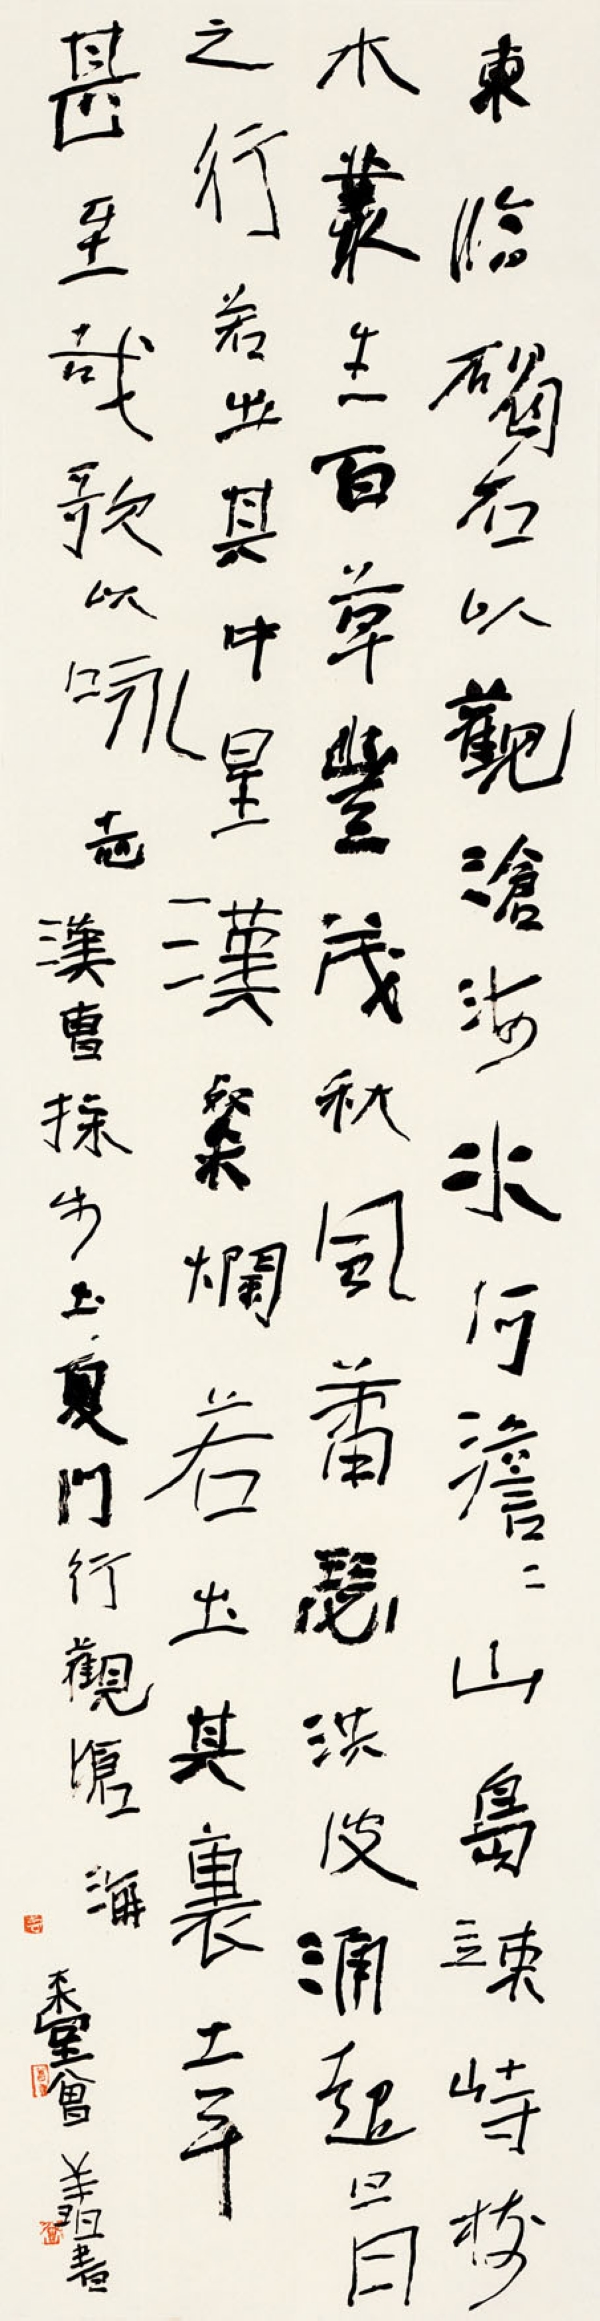 東臨碣石以觀滄海水何澹〻山島竦峙樹
木叢生百草豐茂秋風蕭瑟洪波涌起日月
之行若出其中星漢粲爛若出其裏幸
甚至哉歌以咏志 漢曹操步出夏門行觀滄海
曾翔書